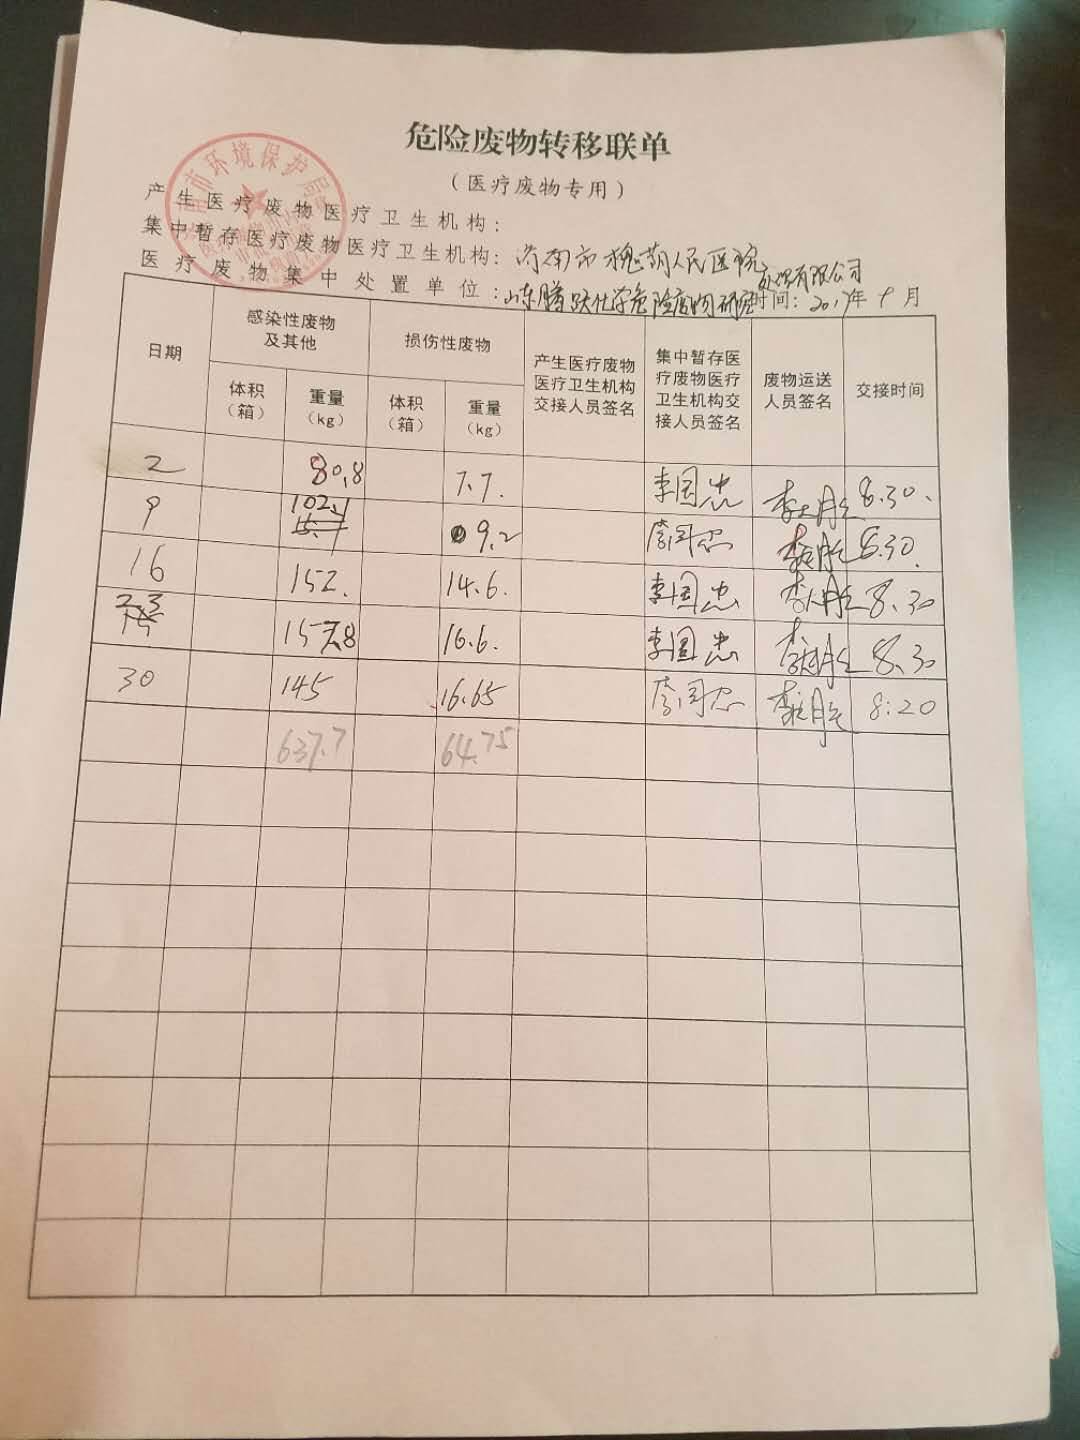 危险废物转移联单
（医疗废物专用）
产生医疗废物医疗卫生机构：
集中暂存医疗废物医疗卫生机构：济南市槐荫人民医院
医疗废物集中处置单位：山东腾跃化学危险废物研究处理有限公司 时间：2017年9月
日期 感染性废物及其他 损伤性废物 产生医疗废物医疗卫生机构交接人员签名 集中暂存医疗废物医疗卫生机构交接人员签名 废物运送人员签名 交接时间
体积（箱） 重量（kg） 体积（箱） 重量（kg）
2 80.8 7.7. 李国忠 8.30.
9 102.1 9.2 李国忠 8.30.
16 152. 14.6. 李国忠 8.30
23 157.8 16.6. 李国忠 8.30
30 145 16.65 李国忠 8:20
637.7 64.75